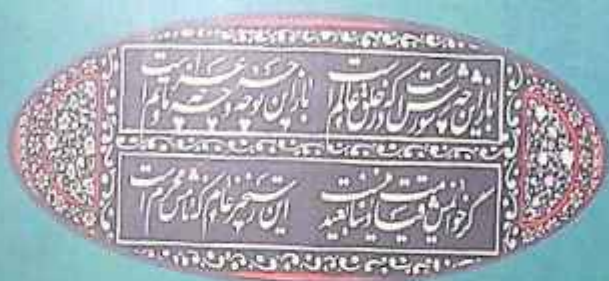 باز این چه شورش است که در خلق عالم است باز این چه نوحه و چه عزا و چه ماتم است
گر خوانمش قیامت دنیا بعید نیست این رستخیز عام که نامش محرم است